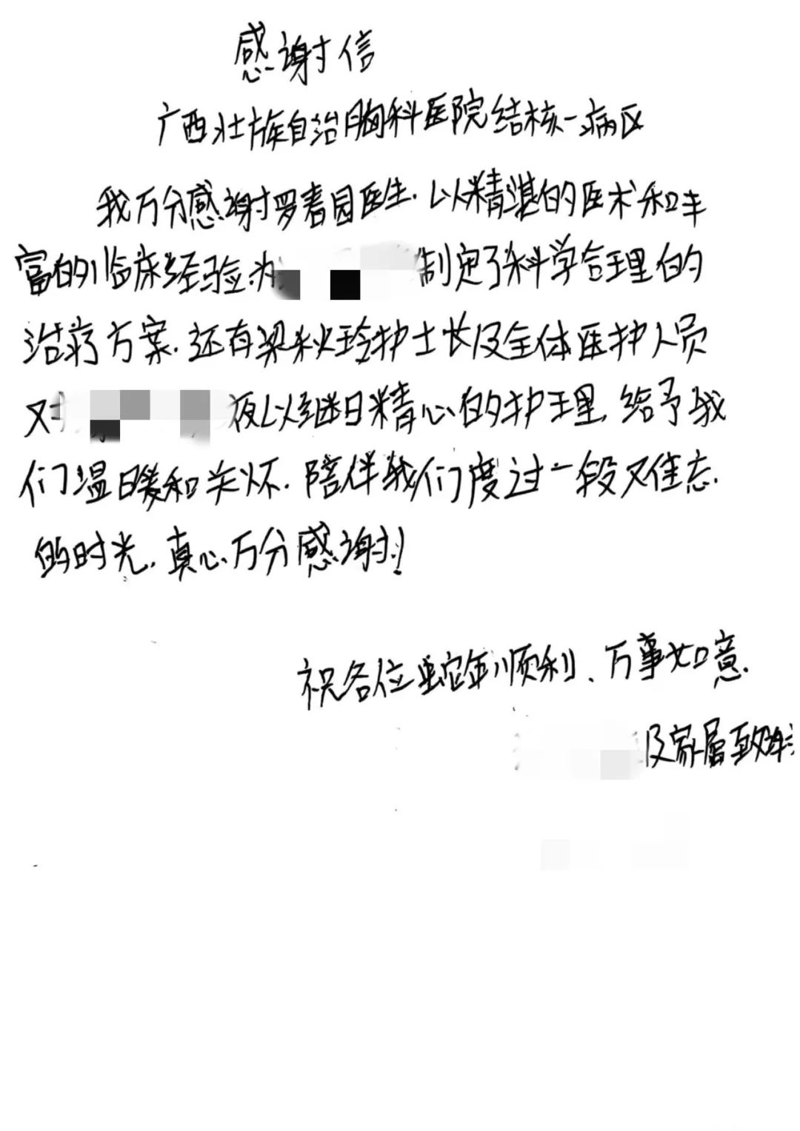 感谢信
广西壮族自治胸科医院结核一病区
我万分感谢罗春园医生.以精湛的医术和丰
富的临床经验为 制定了科学合理的
治疗方案.还有梁秋玲护士长及全体医护人员
对 夜以继日精心的护理.给予我
们温暖和关怀.陪伴我们度过一段又佳态.
的时光.真心万分感谢!
祝各位蛇年顺利、万事如意.
及家属致